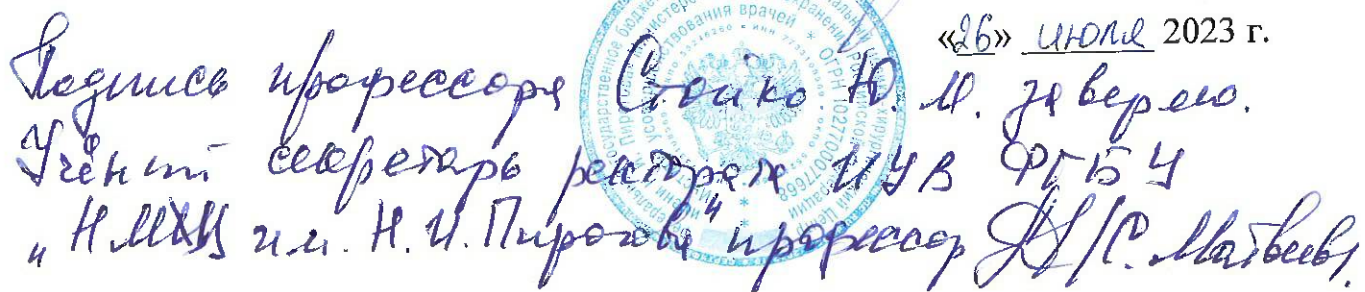 «26» июля 2023 г.
Подпись профессора Стойко Ю.М. заверяю.
Учёный секретарь ректората ИУВ ФГБУ
„НМХЦ им. Н.И. Пирогова" профессор С. Матвеев